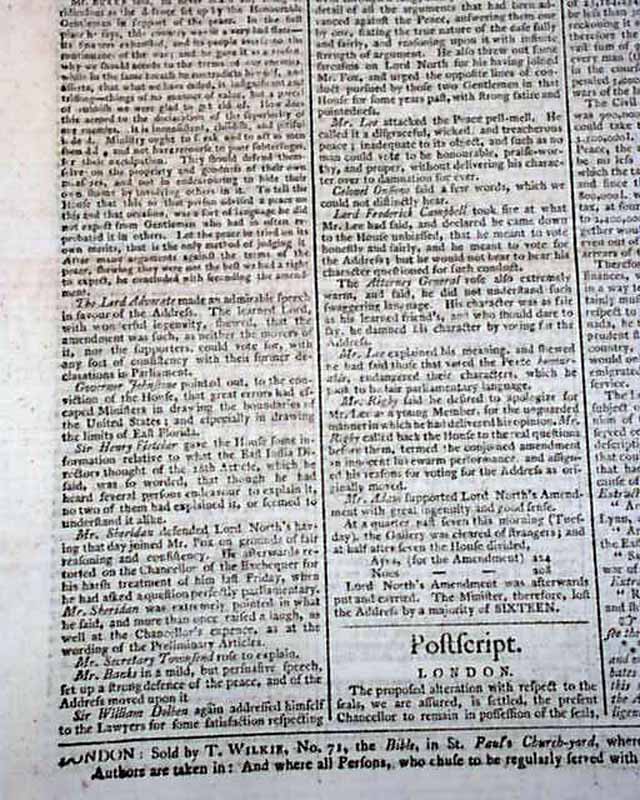 ridiculous as the Noble set up by the Honourable
Gentlemen in support of the peace. In the first
place he says, this country was in a very bad state—
its finances exhausted, and its people averse to a
continuance of the war; and he gave it as a reason
why we should accede to the terms of our enemies,
while in the same breath he contradicts himself, and
asserts, that what we have ceded, is insignificant and
trifling—things of no manner of value, but a parcel
of rubbish we were glad to get rid of. How does
this accord to the declaration of the superiority of
our enemies. It is inconsistent, childish, and pitiful
Ministry ought to speak and to act as men
and not have recourse to poor subterfuges,
for their exculpation. They should defend them-
selves on the propriety and goodness of their own
measures, and not in endeavouring to hide their
own shame by involving others in it. To tell the
House that this or that person advised a peace on
this and that occasion, was a sort of language he did
not expect from Gentlemen who had so often re-
probated it in others. Let the peace be tried on its
own merits, that is the only method of judging it.
After many arguments against the terms of the
peace, shewing they were not the best we had a right
to expect, he concluded with seconding the amend-
ment.
The Lord Advocate made an admirable speech
in favour of the Address. The learned Lord,
with wonderful ingenuity, shewed, that the
amendment was such, as neither the movers of
it, nor the supporters, could vote for, with
any sort of consistency with their former de-
clarations in Parliament.
Governor Johnstone pointed out, to the con-
viction of the House, that great errors had es-
caped Ministers in drawing the boundaries of
the United States; and especially in drawing
the limits of East Florida.
Sir Henry Fletcher gave the House some in-
formation relative to what the East India Di-
rectors thought of the 16th Article, which he
said, was so worded, that though he had
heard several persons endeavour to explain it,
no two of them had explained it, or seemed to
understand it alike.
Mr. Sheridan defended Lord North's hav-
ing that day joined Mr. Fox on grounds of fair
reasoning and consistency. He afterwards re-
torted on the Chancellor of the Exchequer for
his harsh treatment of him last Friday, when
he had asked a question perfectly parliamentary.
Mr. Sheridan was extremely pointed in what
he said, and more than once raised a laugh, as
well at the Chancellor's expence, as at the
wording of the Preliminary Articles.
Mr. Secretary Townsend rose to explain.
Mr. Banks in a mild, but persuasive speech,
set up a strong defence of the peace, and of the
Address moved upon it
Sir William Dolben again addressed himself
to the Lawyers for some satisfaction respecting
detail of all the arguments that had been ad-
vanced against the Peace, answering them one
by one, stating the true nature of the case fully
and fairly, and reasoning upon it with infinite
strength of argument. He also threw out some
forcasms on Lord North for his having joined
Mr. Fox, and urged the opposite lines of con-
duct pursued by those two Gentlemen in that
House for some years past, with strong satire and
pointedness.
Mr. Lee attacked the Peace pell-mell. He
called it a disgraceful, wicked, and treacherous
peace; inadequate to its object, and such as no
man could vote to be honourable, praise-wor-
thy, and proper, without delivering his charac-
ter over to damnation for ever.
Colonel Onslow said a few words, which we
could not distinctly hear.
Lord Frederick Campbell took fire at what
Mr. Lee had said, and declared he came down
to the House unbiassed, that he meant to vote
honestly and fairly, and he meant to vote for
the Address; but he would not bear to hear his
character questioned for such conduct.
The Attorney General rose also extremely
warm, and said, he did not understand such
swaggering language. His character was as fair
as his learned friend's, and who should dare to
say, he damned his character by voting for the
Address.
Mr. Lee explained his meaning, and shewed
he had said those that voted the Peace honour-
able, endangered their characters, which he
took to be fair parliamentary language.
Mr. Rigby said he desired to apologize for
Mr. Lee as a young Member, for the unguarded
manner in which he had delivered his opinion. Mr.
Rigby called back the House to the real question
before them, termed the conjoined amendment
an innocent lukewarm performance, and assign-
ed his reasons for voting for the Address as ori-
ginally moved.
Mr. Adam supported Lord North's Amend-
ment with great ingenuity and good sense.
At a quarter past seven this morning (Tues-
day), the Gallery was cleared of strangers; and
at half after seven the House divided,
Ayes, (for the Amendment) 224
Noes — 208
Lord North's Amendment was afterwards
put and carried. The Minister, therefore, lost
the Address by a majority of SIXTEEN.
Postscript.
LONDON.
The proposed alteration with respect to the
seals, we are assured, is settled, the present
Chancellor to remain in possession of the seals,
LONDON: Sold by T. WILKIE, No. 71, the Bible, in St. Paul's Church-yard, where
Authors are taken in: And where all Persons, who chuse to be regularly served with